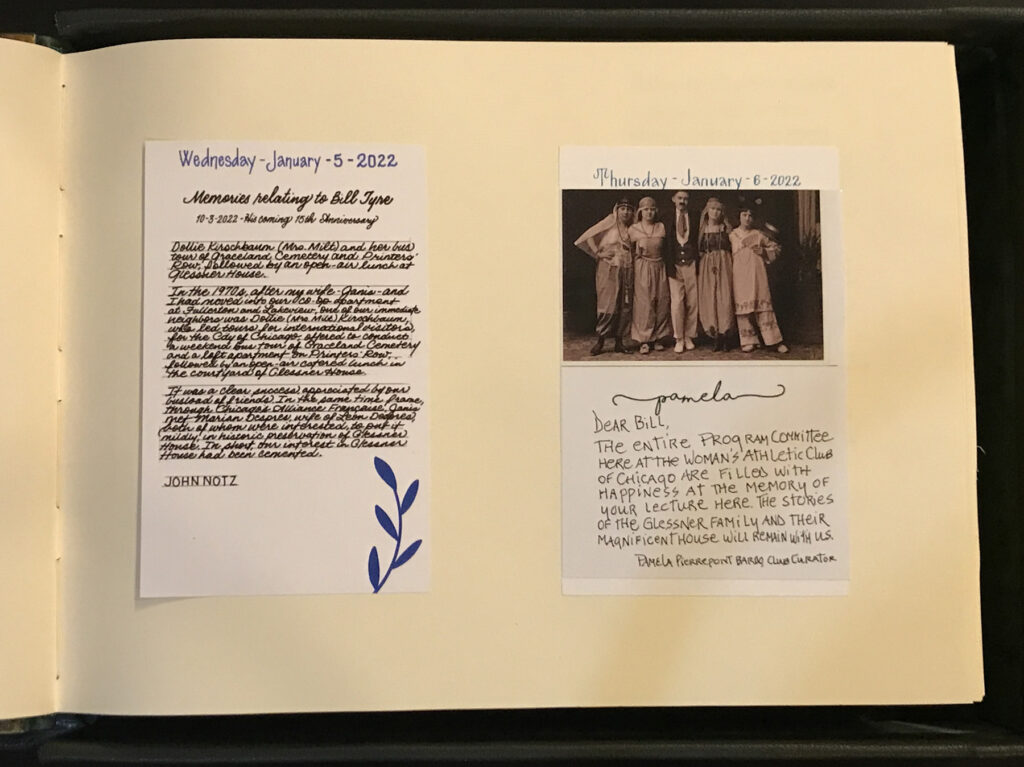 Wednesday - January - 5 - 2022
Memories relating to Bill Tyre
10-3-2022 - His coming 15th Anniversary
Dollie Kirschbaum (Mrs. Milt) and her bus
tour of Graceland Cemetery and Printers'
Row, followed by an open-air lunch at
Glessner House.
In the 1970s, after my wife - Janis - and
I had moved into our co-op apartment
at Fullerton and Lakeview, one of our immediate
neighbors was Dollie (Mrs. Milt) Kirschbaum,
who led tours for international visitors,
for the City of Chicago, offered to conduct
a weekend bus tour of Graceland Cemetery
and a loft apartment on Printers' Row,
followed by an open-air catered lunch in
the courtyard of Glessner House.
It was a clear success, appreciated by our
busload of friends. In the same time frame,
through Chicago's Alliance Française, Janis
met Marian Despres, wife of Leon Despres,
both of whom were interested, to put it
mildly, in historic preservation of Glessner
House. In short, our interest in Glessner
House had been cemented.
JOHN NOTZ
Thursday - January - 6 - 2022
pamela
DEAR BILL,
THE ENTIRE PROGRAM COMMITTEE
HERE AT THE WOMAN'S ATHLETIC CLUB
OF CHICAGO ARE FILLED WITH
HAPPINESS AT THE MEMORY OF
YOUR LECTURE HERE. THE STORIES
OF THE GLESSNER FAMILY AND THEIR
MAGNIFICENT HOUSE WILL REMAIN WITH US.
PAMELA PIERREPONT CLUB CURATOR